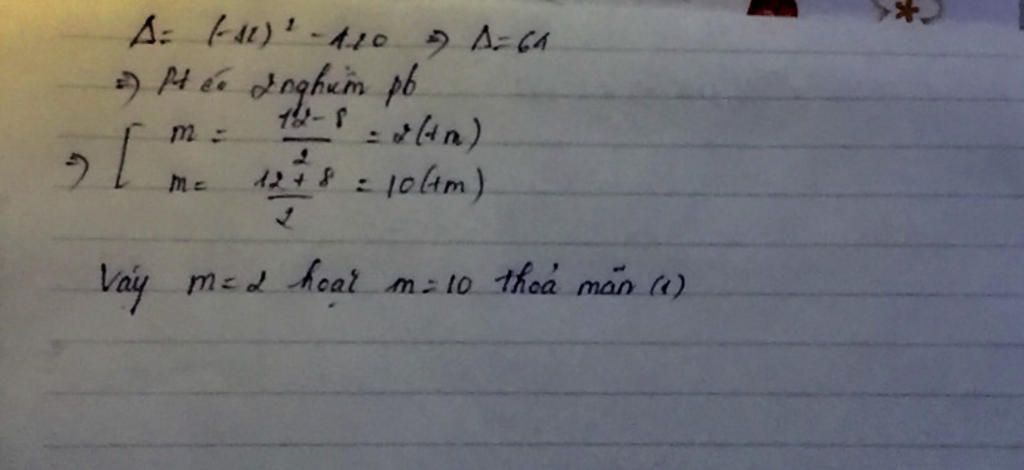 Δ = (-12)² - 4.20 ⇒ Δ = 64
⇒ Pt có 2 nghiệm pb
⇒ [ m = (12 - 8)/2 = 2 (tm)
m = (12 + 8)/2 = 10 (tm)
Vậy m = 2 hoặc m = 10 thoả mãn (1)